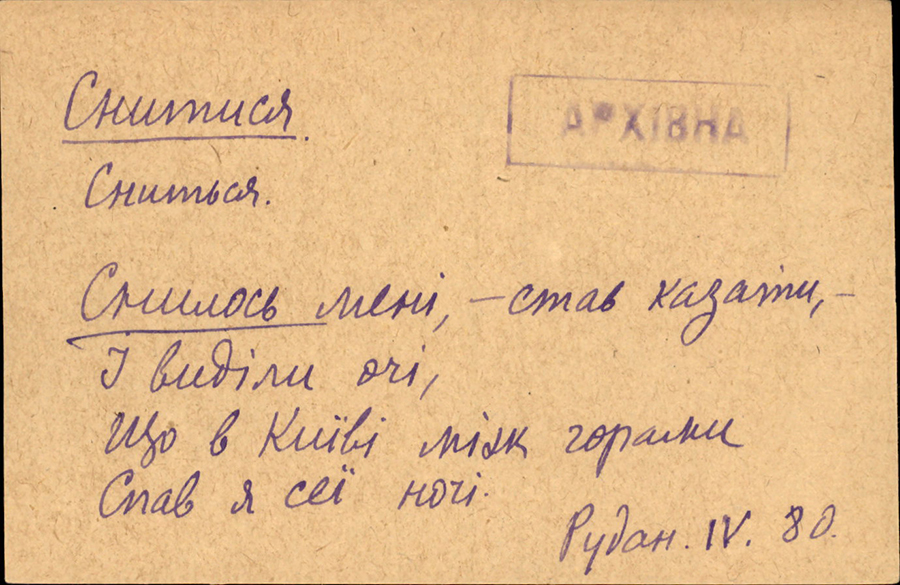 Снитися.
АРХІВНА
Сниться.
Снилось мені, – став казати, –
І виділи очі,
Що в Київі між горами
Спав я сеї ночі.
Рудан. IV. 80.